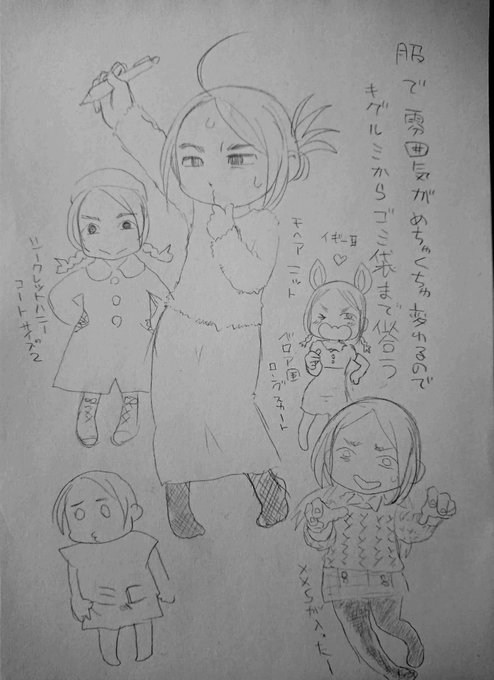 服で雰囲気がめちゃくちゃ変わるので
キグルミからゴミ袋まで似合う
モヘアニット
イギー耳♡
ベロア風
ロングスカート
シークレットハニー
コートサイズ2
XXSが入ったー